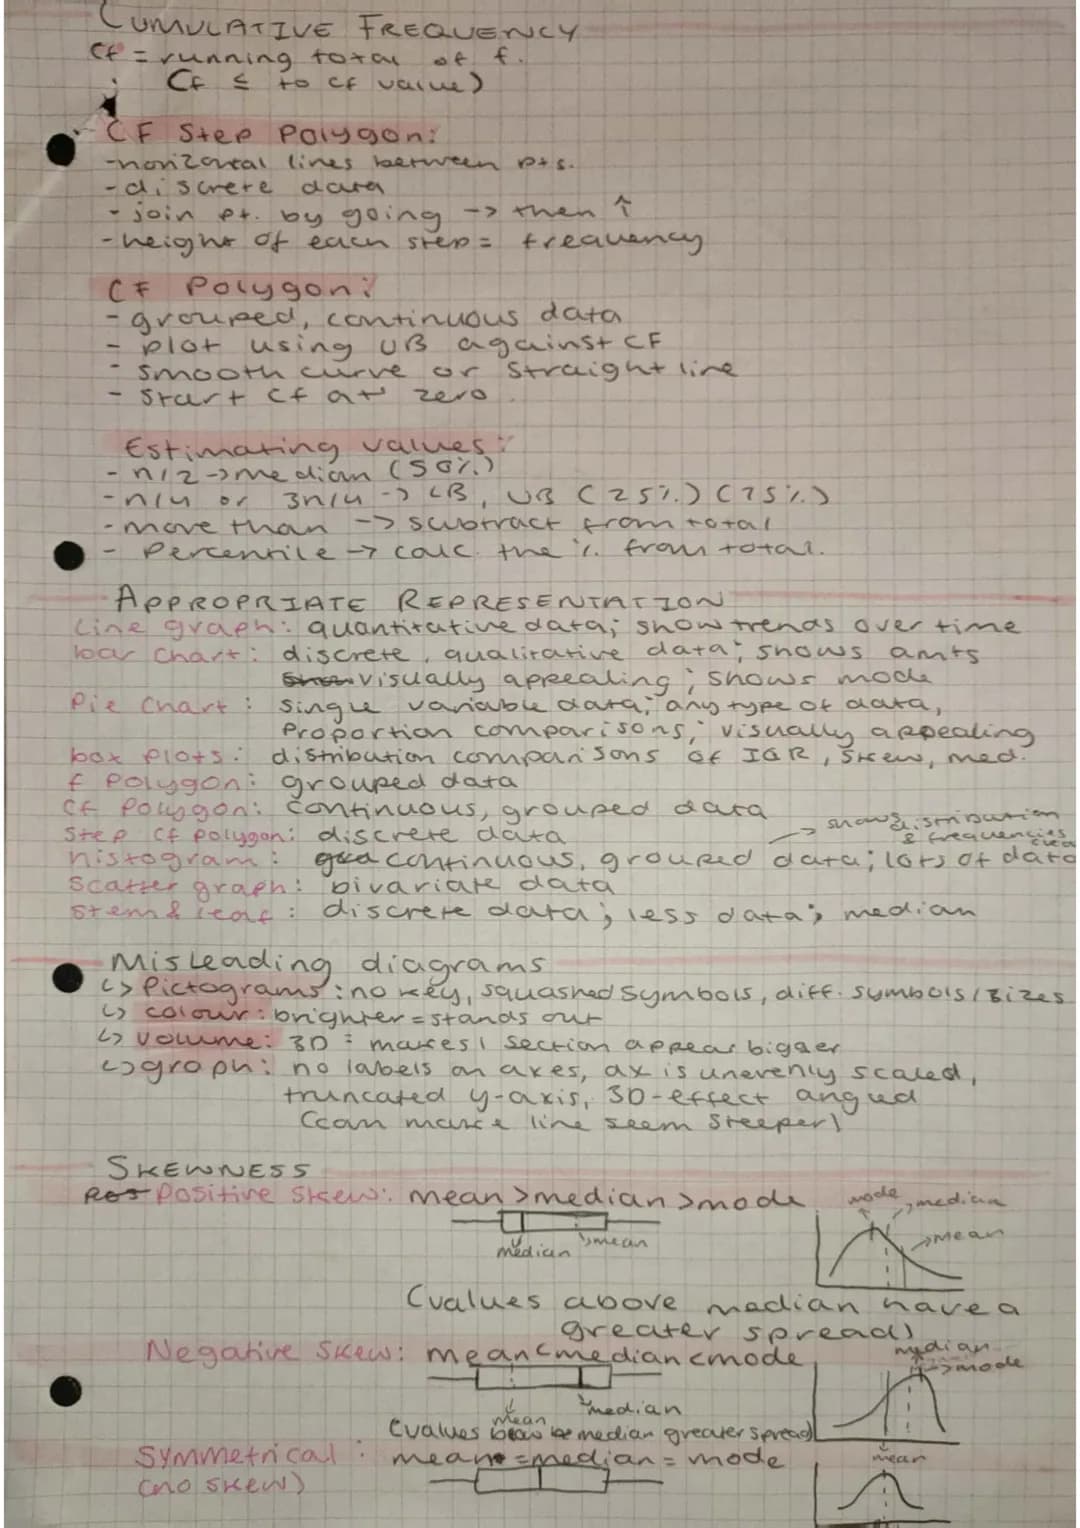 CUMULATIVE FREQUENCY
Cf = running total of f.
(f ≤ to cf value)
CF Step Polygon:
-horizontal lines between pts.
-discrete data
-join pt. by going -> then ↑
-height of each step = frequency
CF Polygon:
- grouped, continuous data
- plot using UB against CF
- smooth curve or straight line
- start cf at zero.
Estimating values:
- n/2 -> median (50%)
- n/4 or 3n/4 -> LB, UB (25%) (75%)
- more than -> subtract from total
- Percentile -> calc. the % from total.
APPROPRIATE REPRESENTATION
Line graph: quantitative data; show trends over time
bar chart: discrete, qualitative data; shows amts
visually appealing; shows mode
Pie chart: single variable data; any type of data,
Proportion comparisons; visually appealing
box plots: distribution comparisons of IQR, skew, med.
f Polygon: grouped data
Cf Polygon: continuous, grouped data
Step cf polygon: discrete data
-> shows distribution
& frequencies
histogram: continuous, grouped data; lots of data
Scatter graph: bivariate data
Stem & leaf: discrete data; less data; median
Misleading diagrams
↳ Pictograms: no key, squashed symbols, diff. symbols/sizes
↳ colour: brighter = stands out
↳ Volume: 3D = makes 1 section appear bigger
↳ graph: no labels on axes, axis unevenly scaled,
truncated y-axis, 3D-effect angled
(can make line seem steeper)
SKEWNESS
Pos Positive skew: mean > median > mode
mode median
mean
median mean
(values above median have a
greater spread)
Negative Skew: mean < median < mode
median
-> mode
mean median
(values below median greater spread)
mean
Symmetrical: mean = median = mode
(no skew)